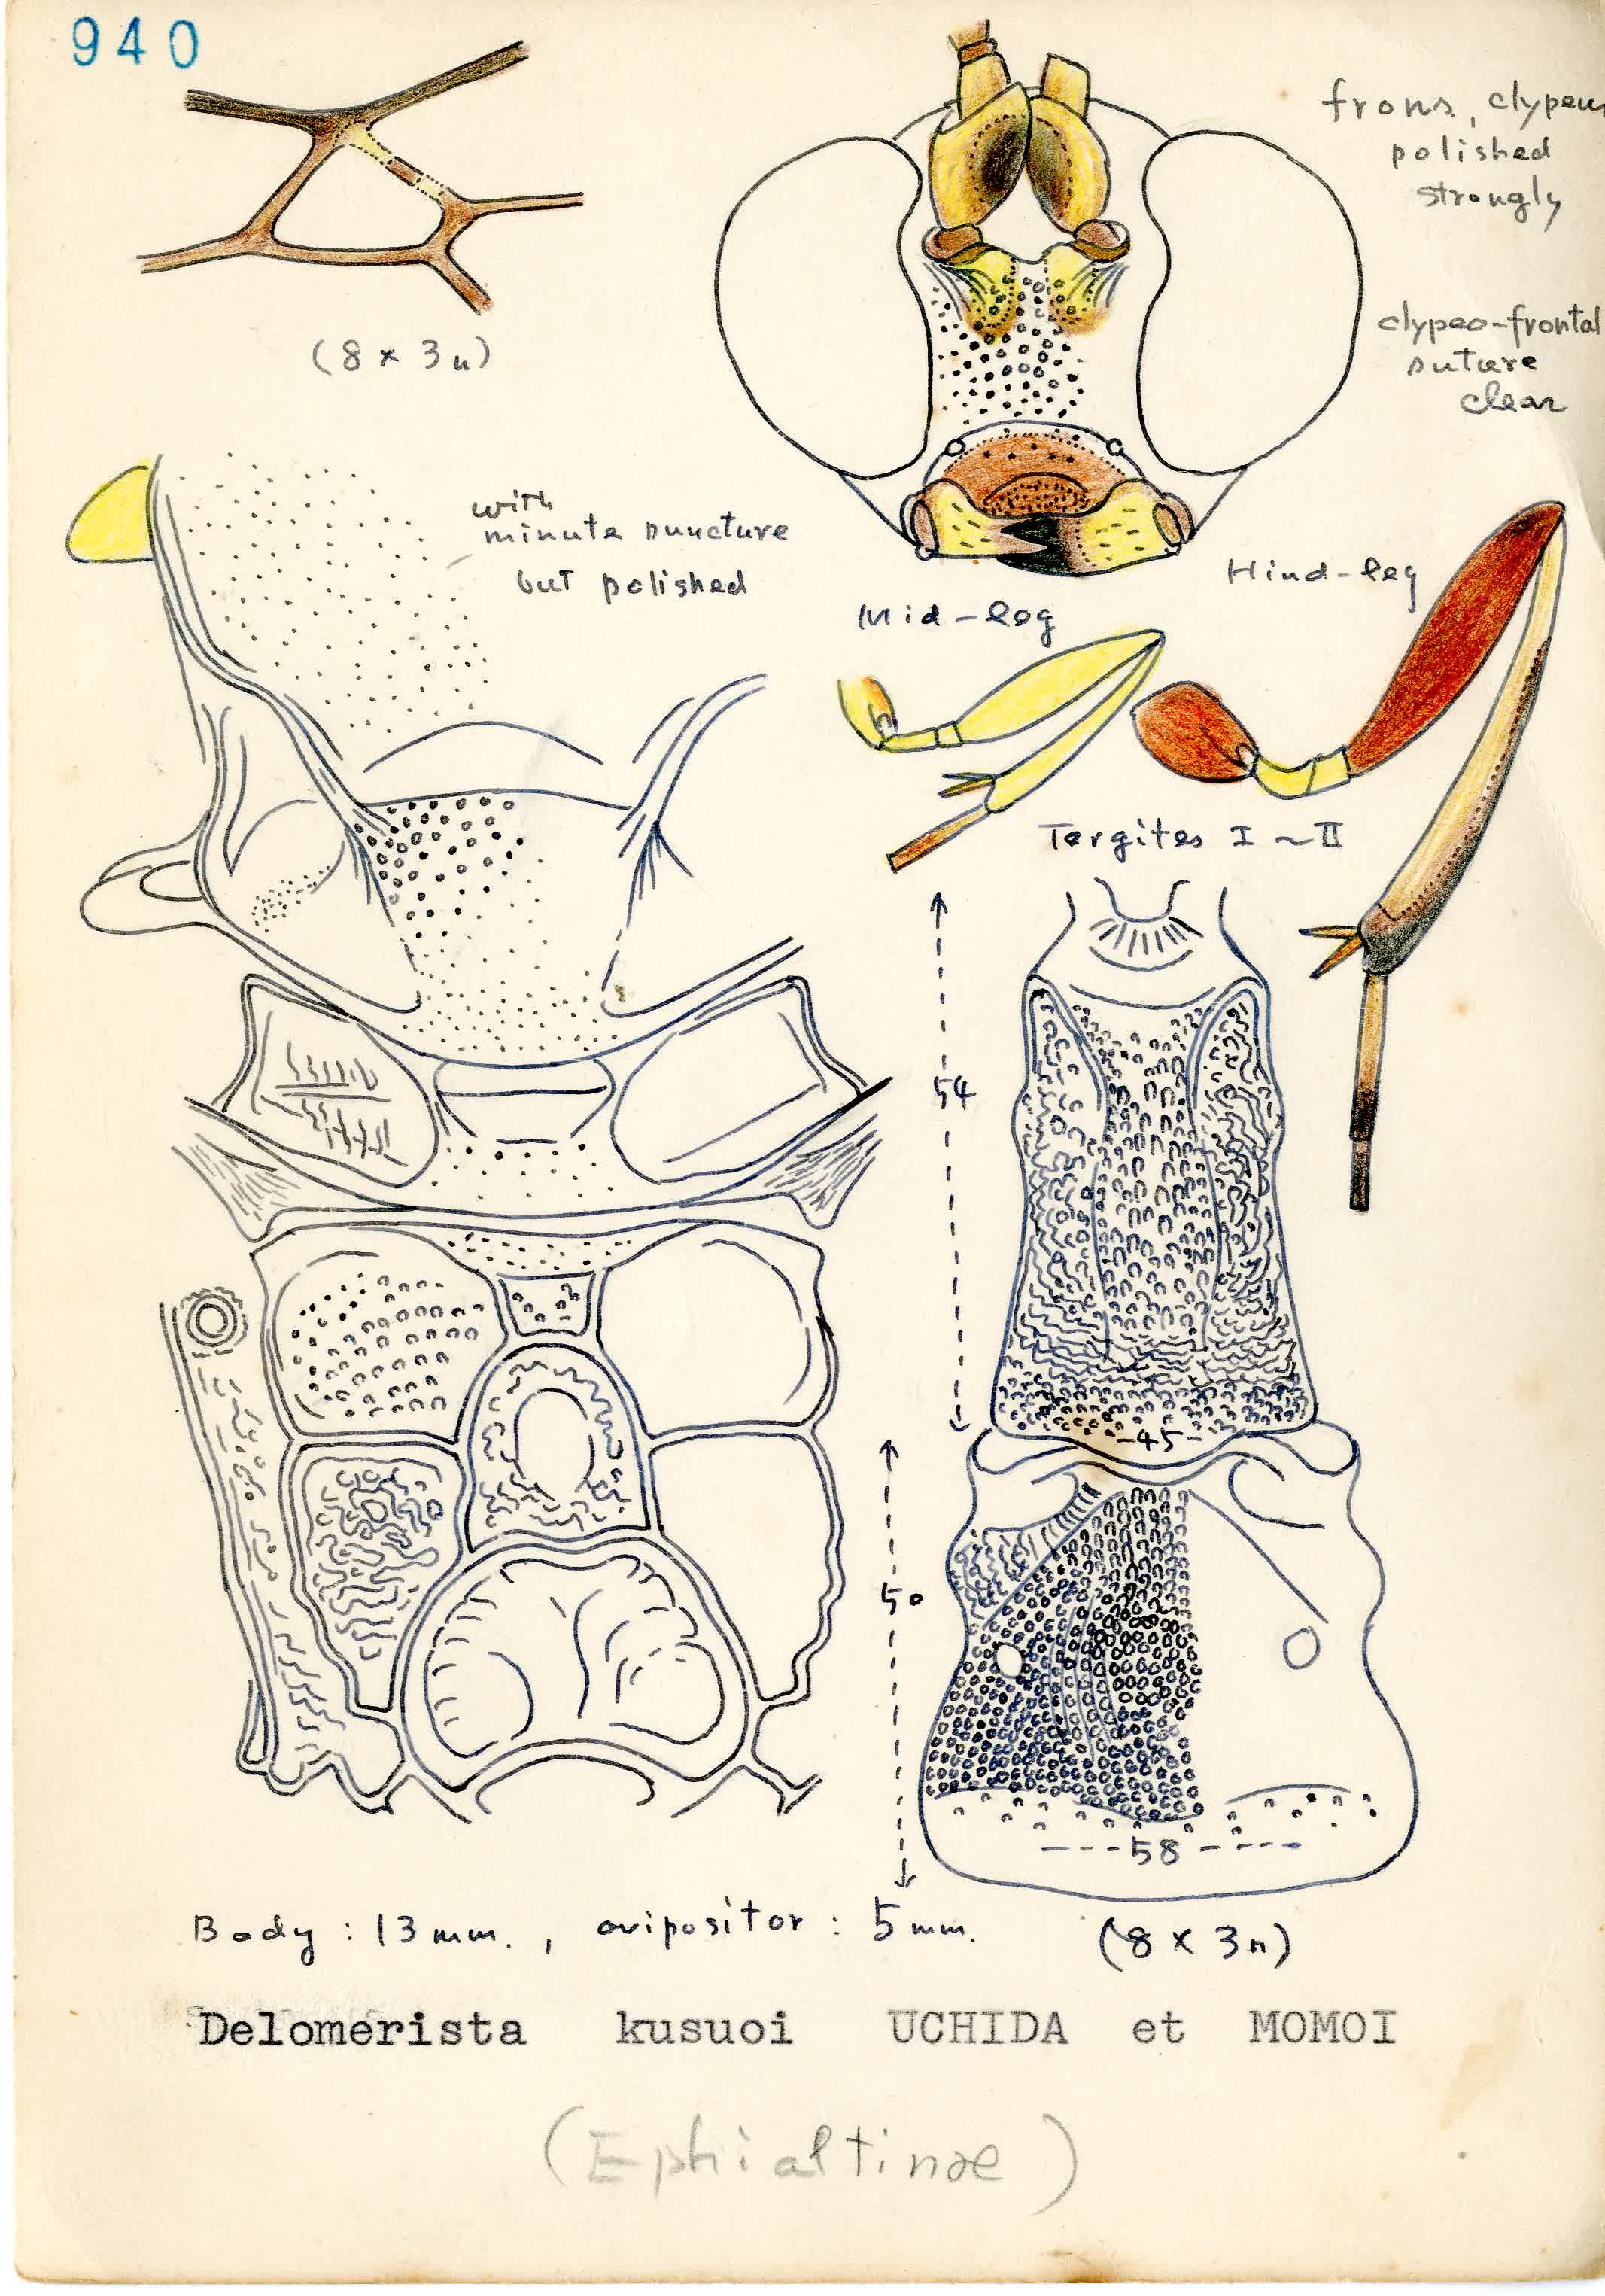 940
frons, clypeus
polished
strongly
(8 × 3n)
clypeo-frontal
suture
clear
with
minute puncture
but polished
Hind-leg
Mid-leg
Tergites I ~ II
54
-45-
50
---58----
Body : 13 mm. , ovipositor : 5 mm.
(8 × 3n)
Delomerista kusuoi UCHIDA et MOMOI
(Ephialtinae)